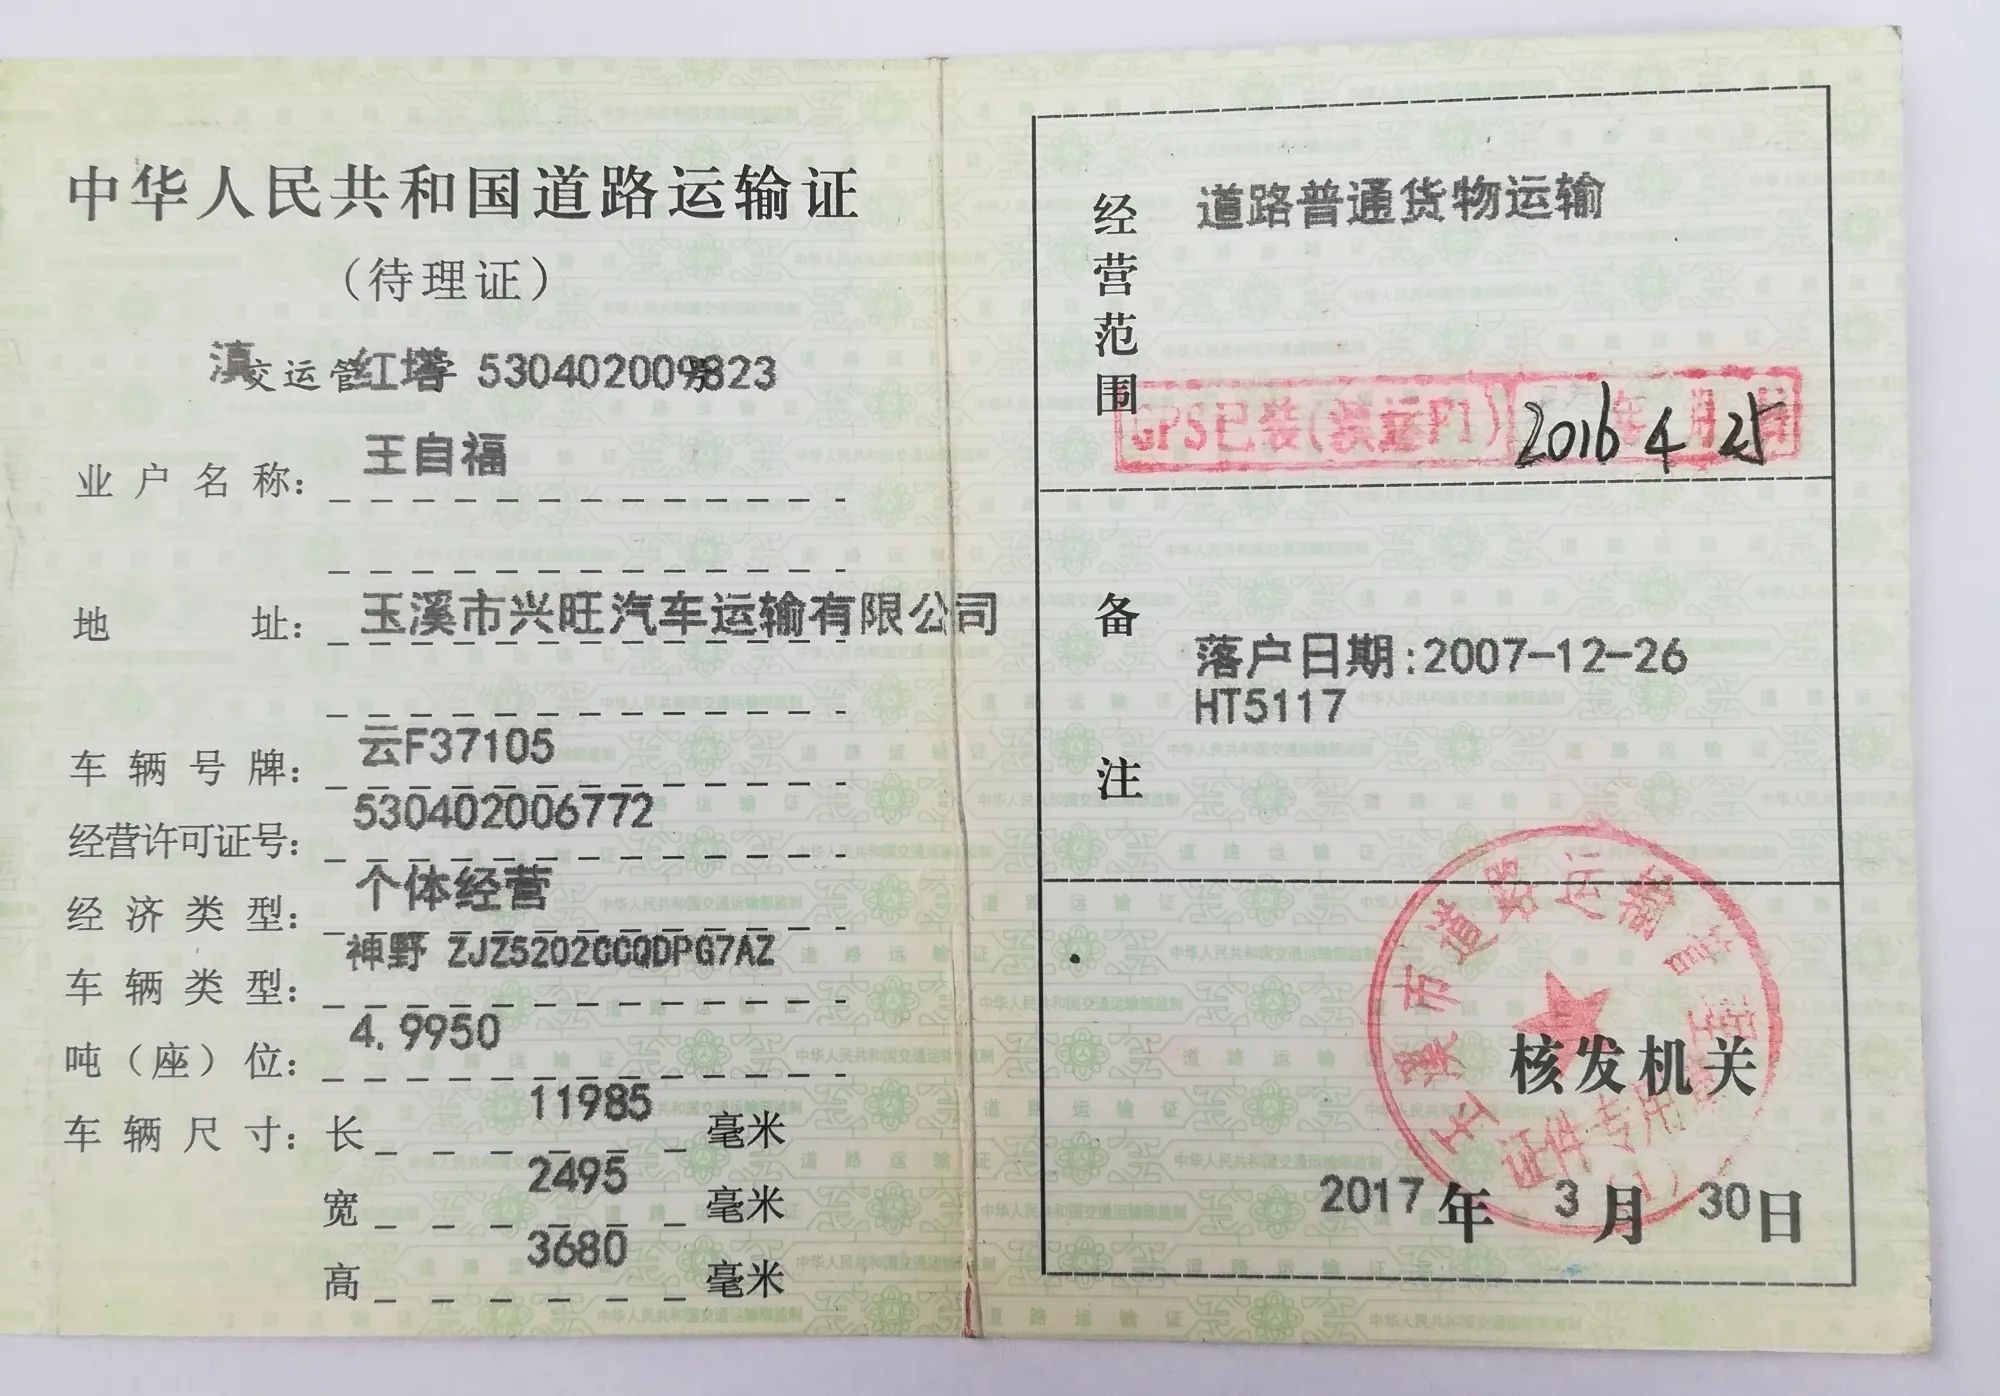 中华人民共和国道路运输证
（待理证）
滇交运管红塔字 530402009823号
业户名称： 王自福
地址： 玉溪市兴旺汽车运输有限公司
车辆号牌： 云F37105
经营许可证号： 530402006772
经济类型： 个体经营
车辆类型： 神野 ZJZ5202CCQDPG7AZ
吨（座）位： 4.9950
车辆尺寸：长 11985 毫米
宽 2495 毫米
高 3680 毫米
经营范围 道路普通货物运输
GPS已装(货运F1) 2016年4月25日
备注 落户日期:2007-12-26
HT5117
玉溪市道路运输管理
证件专用章
(1)
核发机关
2017年3月30日